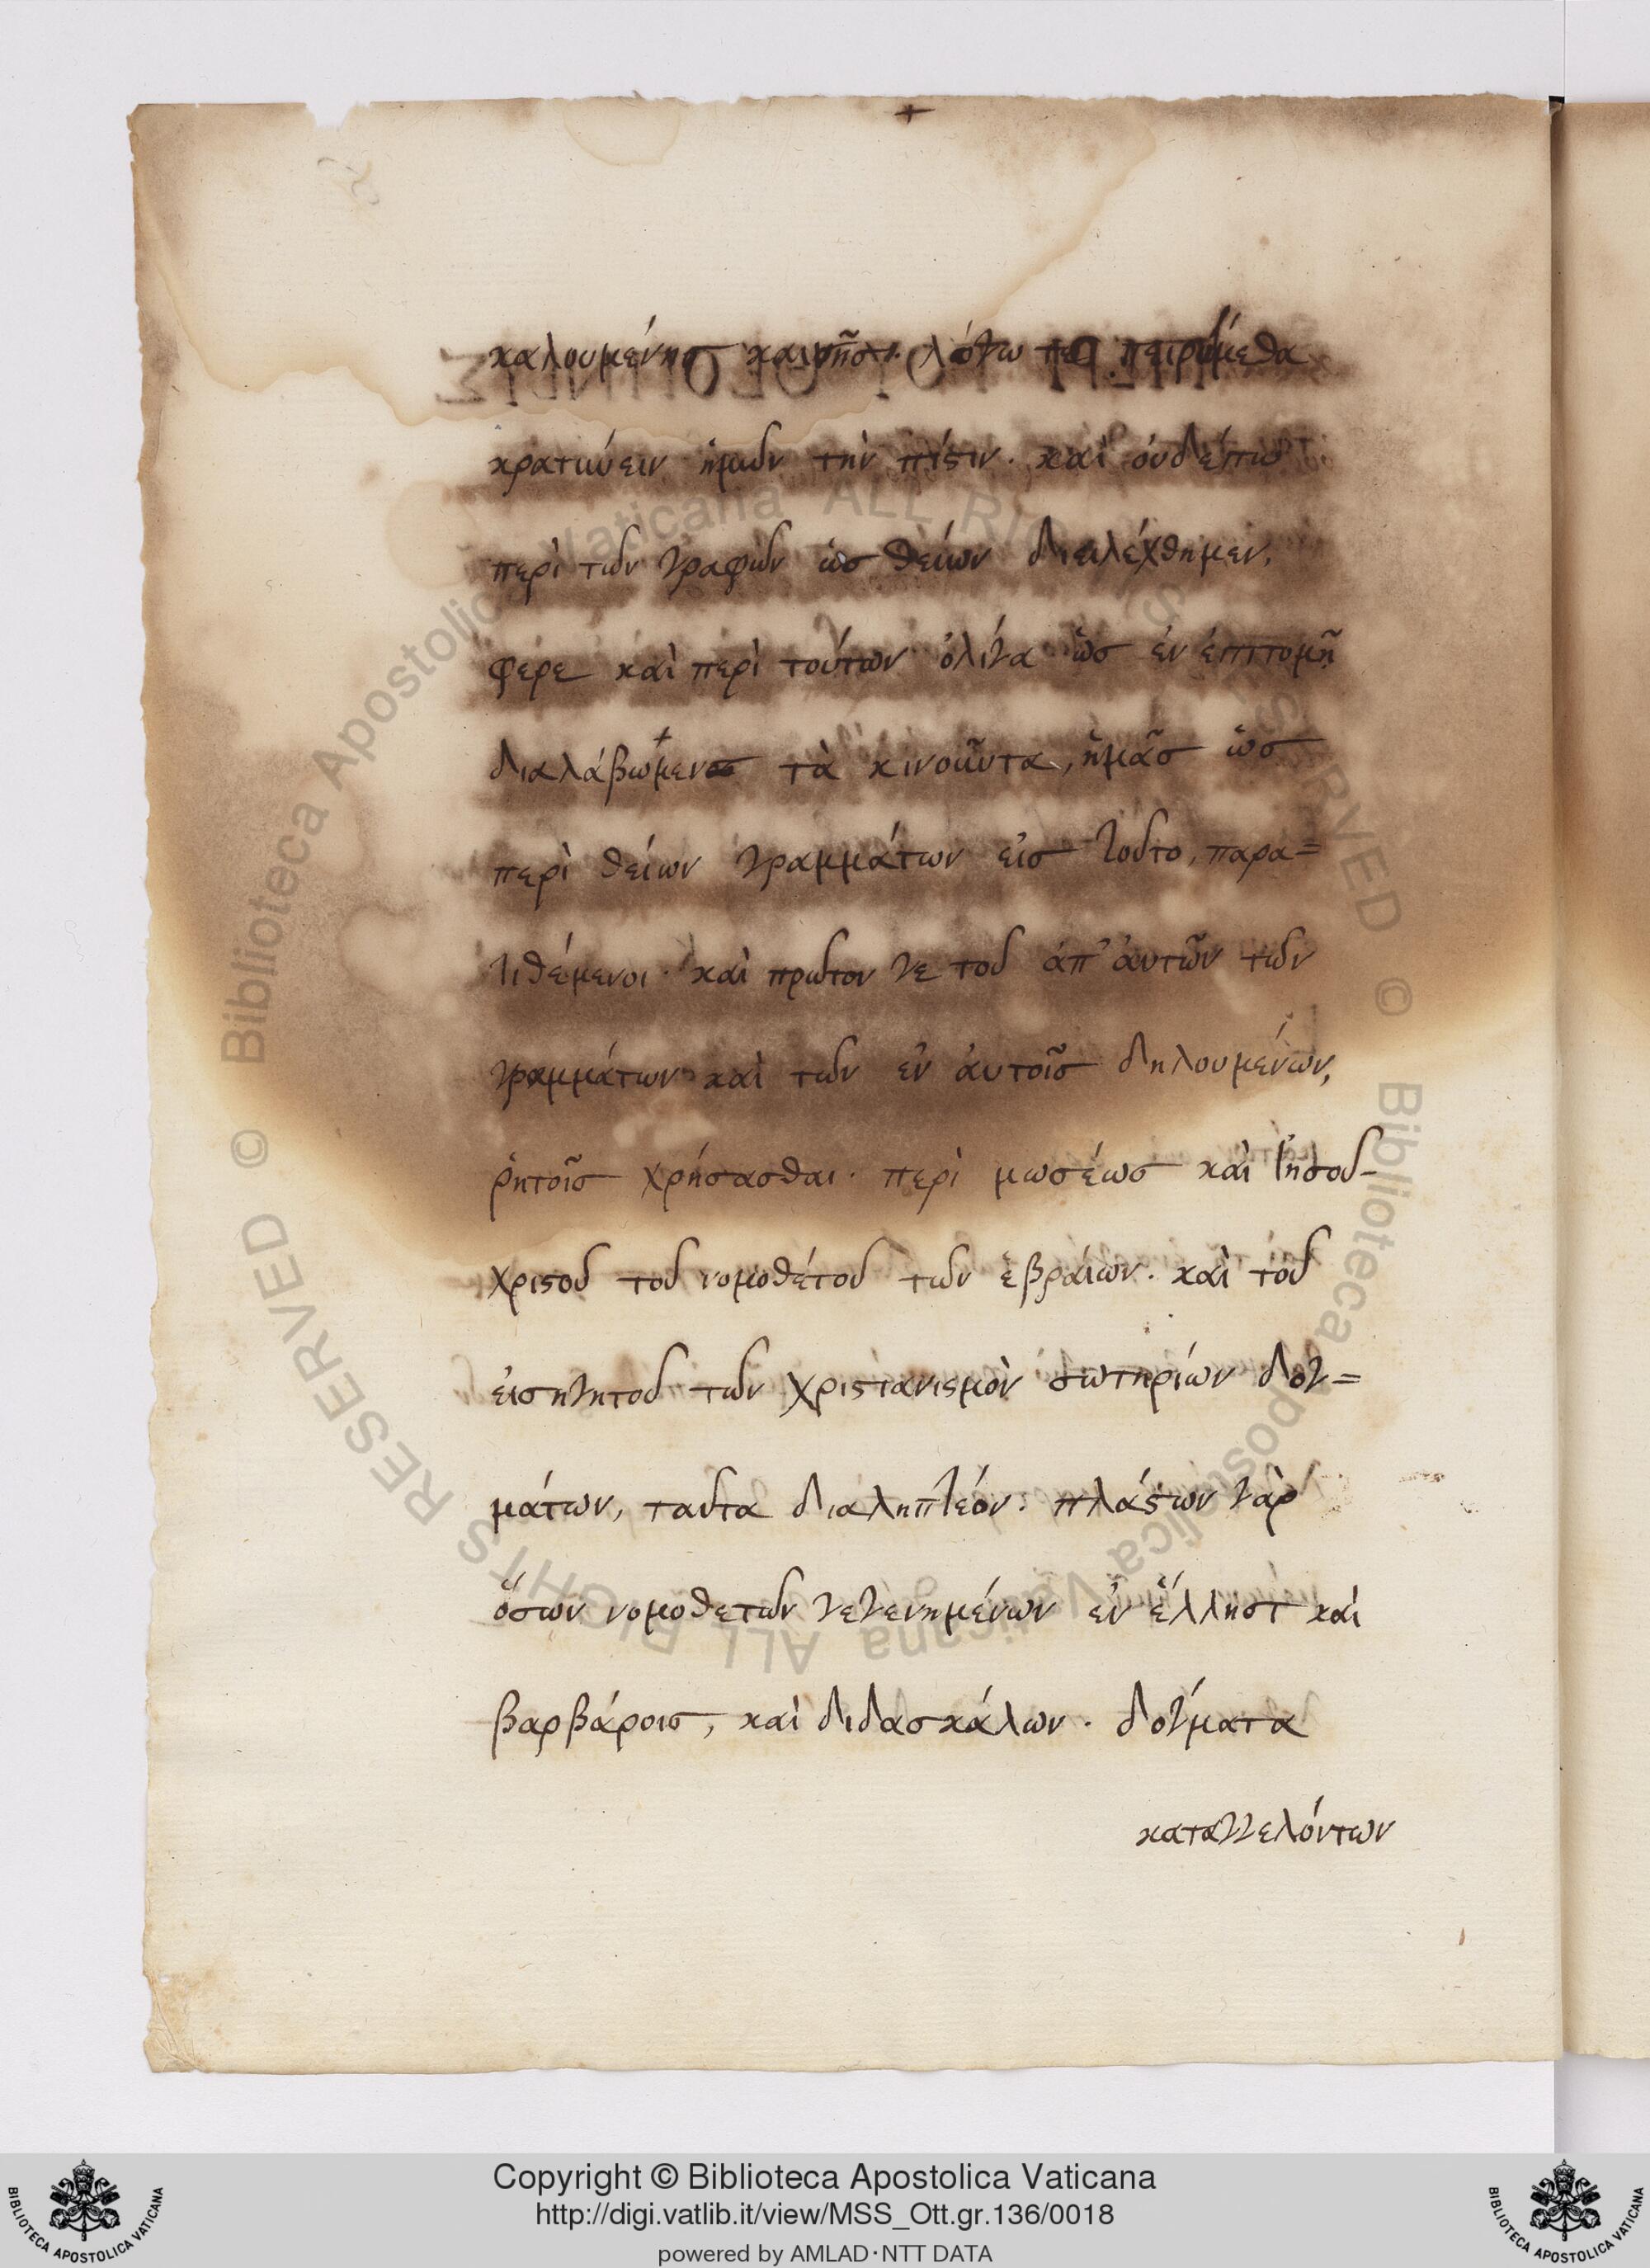 καλουμένησ καινῆσ. λόγω τε πειρώμεθα
κρατύνειν ἡμῶν τὴν πίστιν. καὶ ὀυδέπω
περὶ τῶν γραφῶν ὡσ θείων διειλέχθημεν,
φέρε καὶ περὶ τούτων ὀλίγα ὡσ ἐν ἐπιτομῆ
διαλάβωμεν τὰ κινοῦντα, ἡμᾶσ ὡσ
περὶ θείων γραμμάτων εἰσ τοῦτο, παρα=
τιθέμενοι. καὶ πρῶτον γε τοῦ ἀπ' ἀυτῶν τῶν
γραμμάτων καὶ τῶν ἐν ἀυτοῖσ δηλουμένων,
ῥητοῖσ χρήσασθαι. περὶ μωσέωσ καὶ ἰησοῦ-
χριστοῦ τοῦ νομοθέτου τῶν ἑβραίων. καὶ τοῦ
ἐισηγητοῦ τῶν χριστιανισμὸν σωτηρίων δογ=
μάτων, ταῦτα διαληπτέον. πλάστων γὰρ
ὅσων νομοθετῶν γεγενημένων ἐν ἕλλησι καὶ
βαρβάροισ, καὶ διδασκάλων. δόγματα
καταγγελόντων
© Biblioteca Apostolica Vaticana ALL RIGHTS RESERVED © Biblioteca Apostolica Vaticana ALL RIGHTS RESERVED
Copyright © Biblioteca Apostolica Vaticana
http://digi.vatlib.it/view/MSS_Ott.gr.136/0018
powered by AMLAD·NTT DATA
BIBLIOTECA APOSTOLICA VATICANA
BIBLIOTECA APOSTOLICA VATICANA